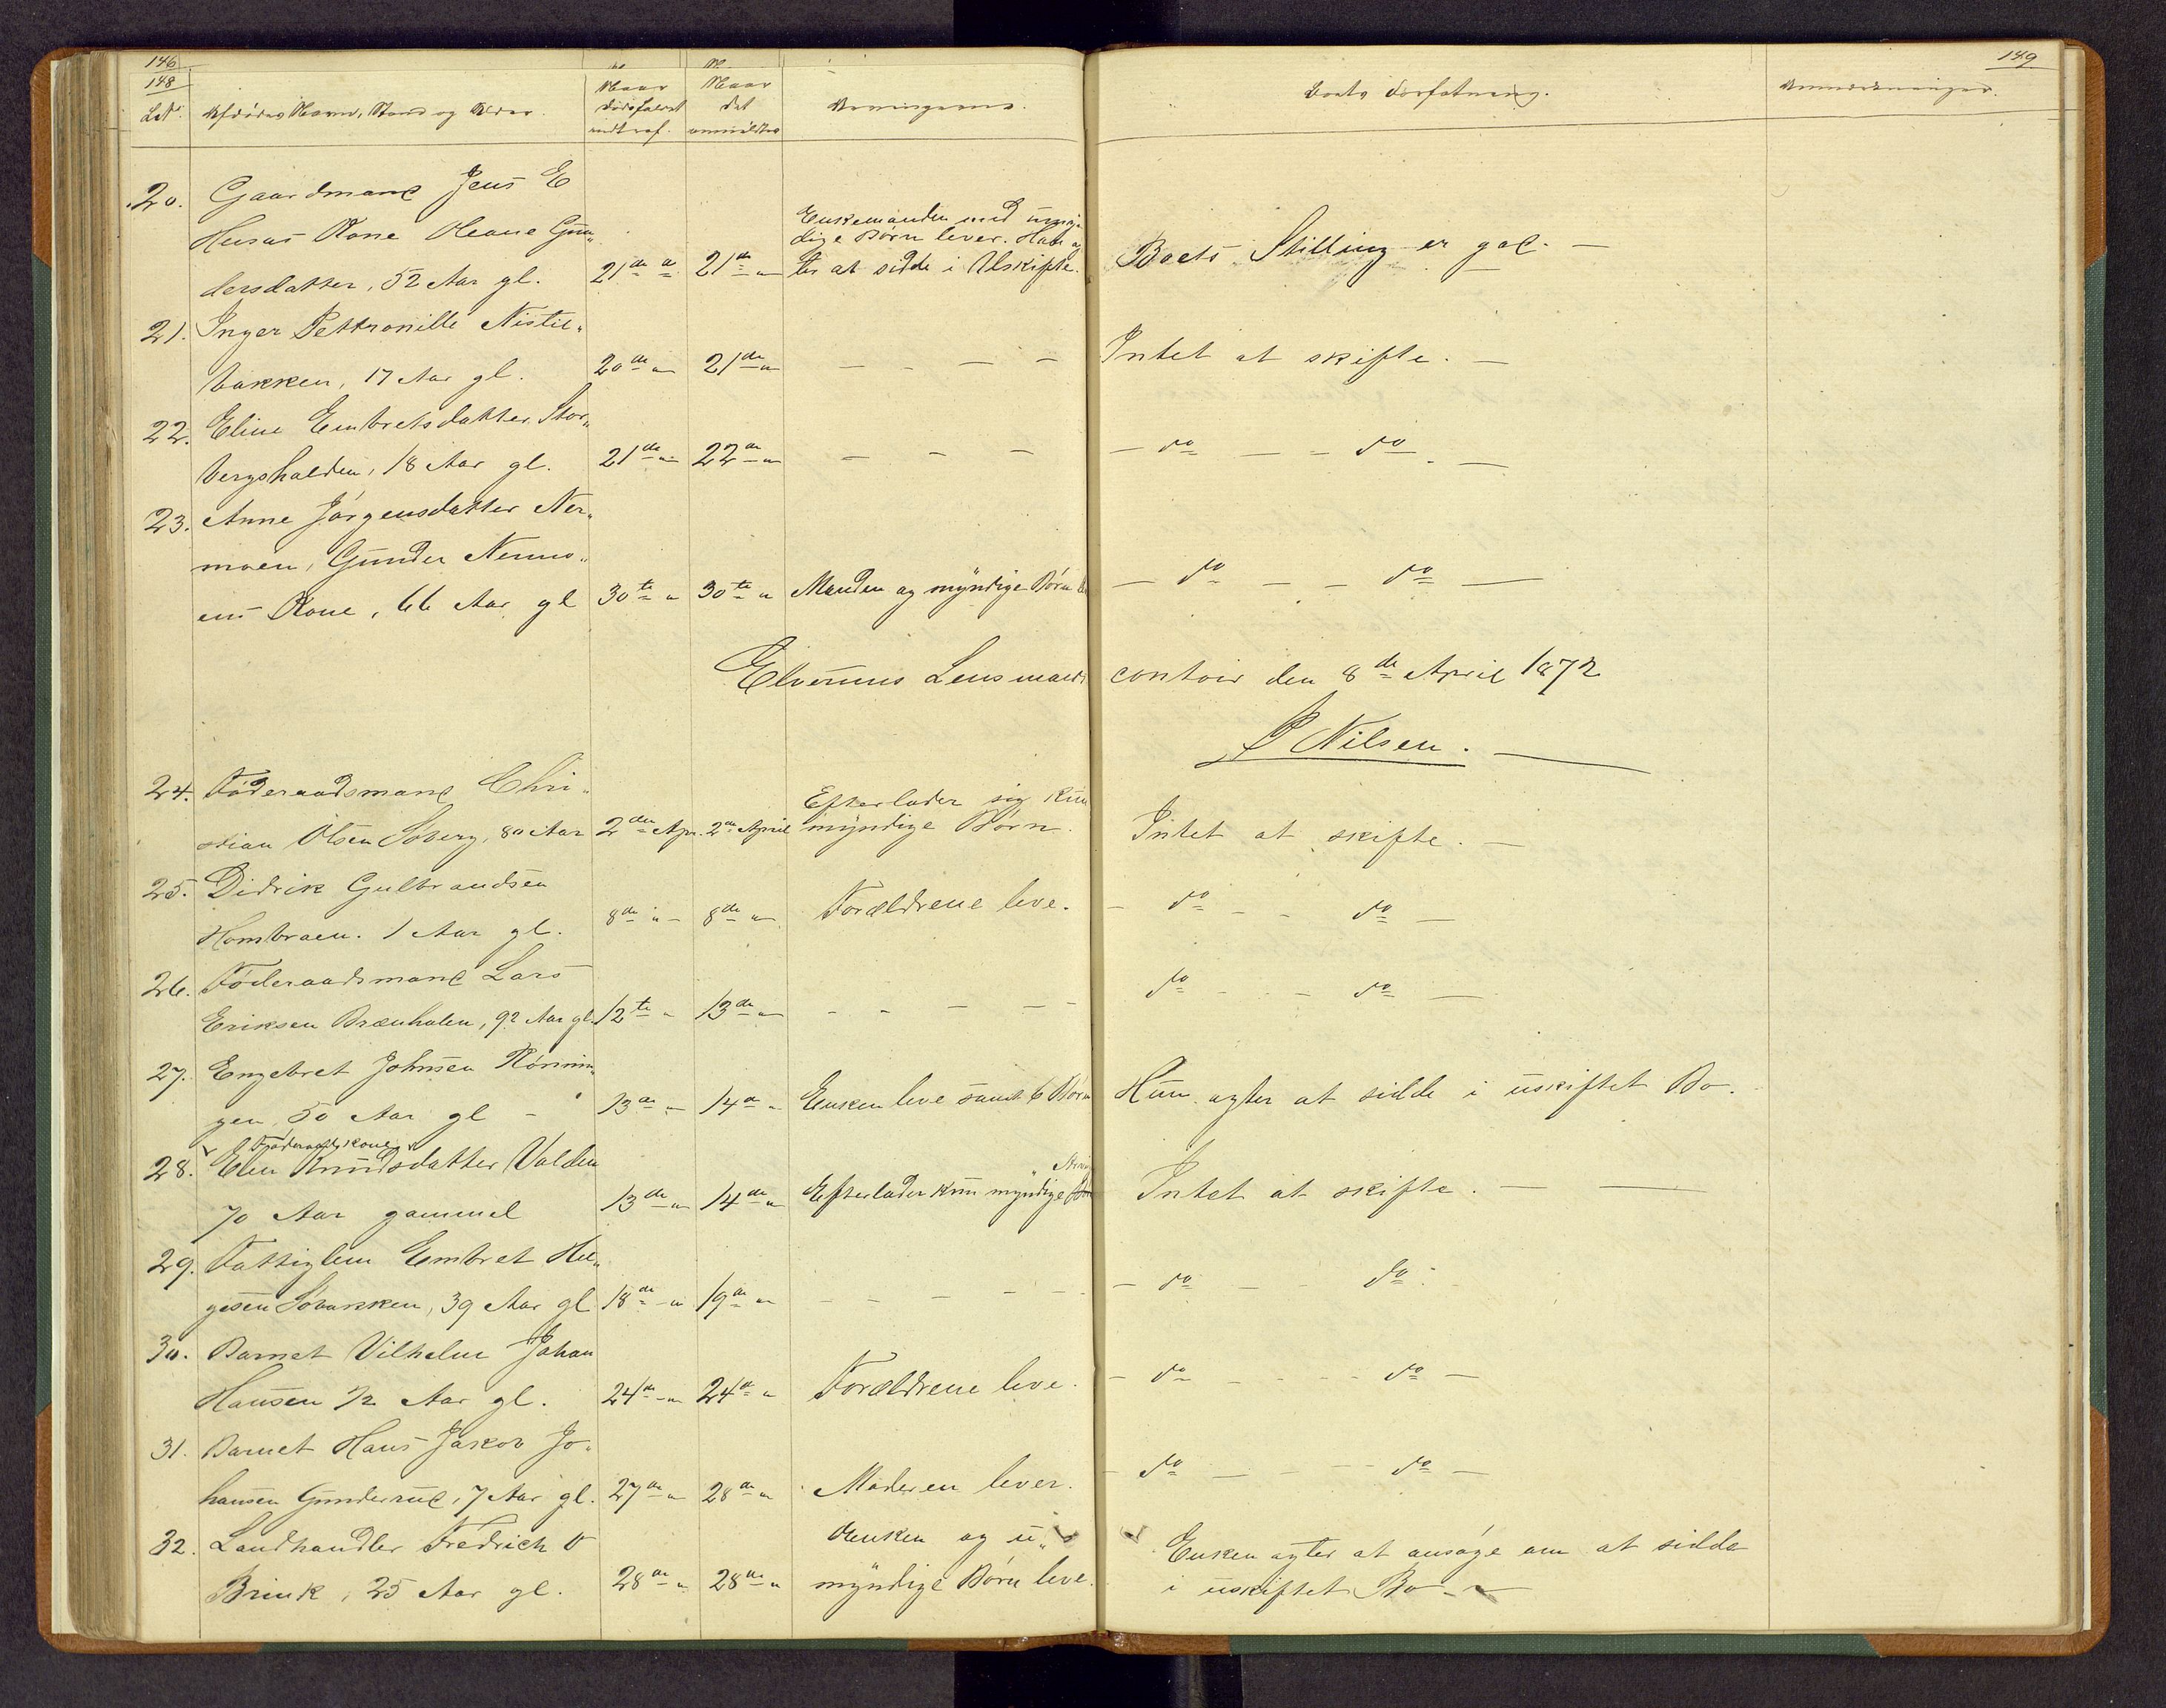 146
148
149
Afdødes Navn, Stand og Alder.
Naar dødsfaldet indtraf.
Naar det anmeldtes
Arvingerne.
Boets Forfatning.
Anmærkninger.
20. Gaardmand Jens E
Husas Kone Oleane Gun„
dersdatter, 52 Aar gl. 21de " 21de "
Enkemanden med umyn
dige Børn lever. Han ag
ter at sidde i Uskifte.
Boets Stilling er god. —
21. Inger Pettronille Nistu„
bakken, 17 Aar gl. 20de " 21de " — - — - Intet at skifte. —
22. Eline Embretsdatter Stor„
bergshalden, 18 Aar gl. 21de " 22de " — — — — do — — do —
23. Anne Jørgensdatter Ner„
moen, Gunder Nermo„
ens Kone, 66 Aar gl 30te " 30te " Manden og myndige Børn — do — — do —
Elverums Lensmands contoir den 8de April 1872
P Nilsen. —
24. Föderaadsmand Chri„
stian Olsen Soberg, 80 Aar 2den Apr. 2den April
Efterlader sig kun
myndige Børn.
Intet at skifte. —
25. Didrik Gulbrandsen
Hombraen. 1 Aar gl. 8de " 8de " Forældrene leve. - do - - do —
26. Föderaadsmand Lars
Eriksen Brænholen, 92 Aar gl. 12te " 13de " - - — — - do - - do —
27. Engebret Johnsen Rønnin„
gen, 50 Aar gl - 13de " 14de " Enken leve samt 6 Børn Hun agter at sidde i uskiftet Bo.
Føderaadskone
28. Elen Knudsdatter Valden
70 Aar gammel 13de " 14de " Efterlader kun myndige Intet at skifte. — —
29. Fattiglem Embret Hel„
gesen Sobakken, 39 Aar gl 18de " 19de " - - - - - — do — - do -
30. Barnet Vilhelm Johan
Hansen ½ Aar gl. 24de " 24de " Forældrene leve. - do - - - do —
31. Barnet Hans Jakob Jo„
hansen Gunderrud, 7 Aar gl. 27de " 28de " Moderen lever. - do — - - do —
32. Landhandler Fredrich V
Brink, 25 Aar gl. 28de " 28de "
Enken og u„
myndige Børn leve.
Enken agter at ansøge om at sidde
i uskiftet Bo -